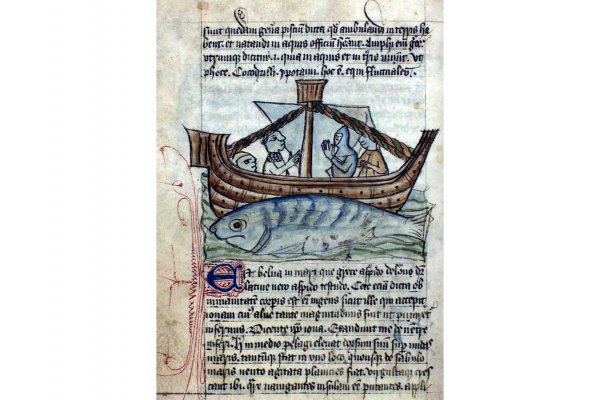 sunt quedam gen̄a pisciū dicta qď ambulandi in terris ha
bent. et natandi in aquis officiū hēant. Amphi em̄ grece
utrumque dicitur .i. quia in aquis et in tr̄is uiuūt. Vt
phoce. Cocodrilli. ypotami. hoc ē. equi fluctuales.
Est belua in mari que grece aspido delone dr̄
latine uero aspido testudo. Cete eciā dicta ob
inmanitatem corpis est em̄ ingens sicut ille qui accepit
ionam cuiꝰ aluꝰ tante magnitudinis fuit ut putaret
infernus. Dicente ip̄o iona. Exaudiuit me de uentre
inferi. in medio pelagi eleuat dorsum suum undas
maris. tantūque stat in uno loco. quousque de sabulo
maris uento agitata planicies fiat. virgultaque cres
cant ibi. Qr̄ nauigantes insulam eē putantes. appli